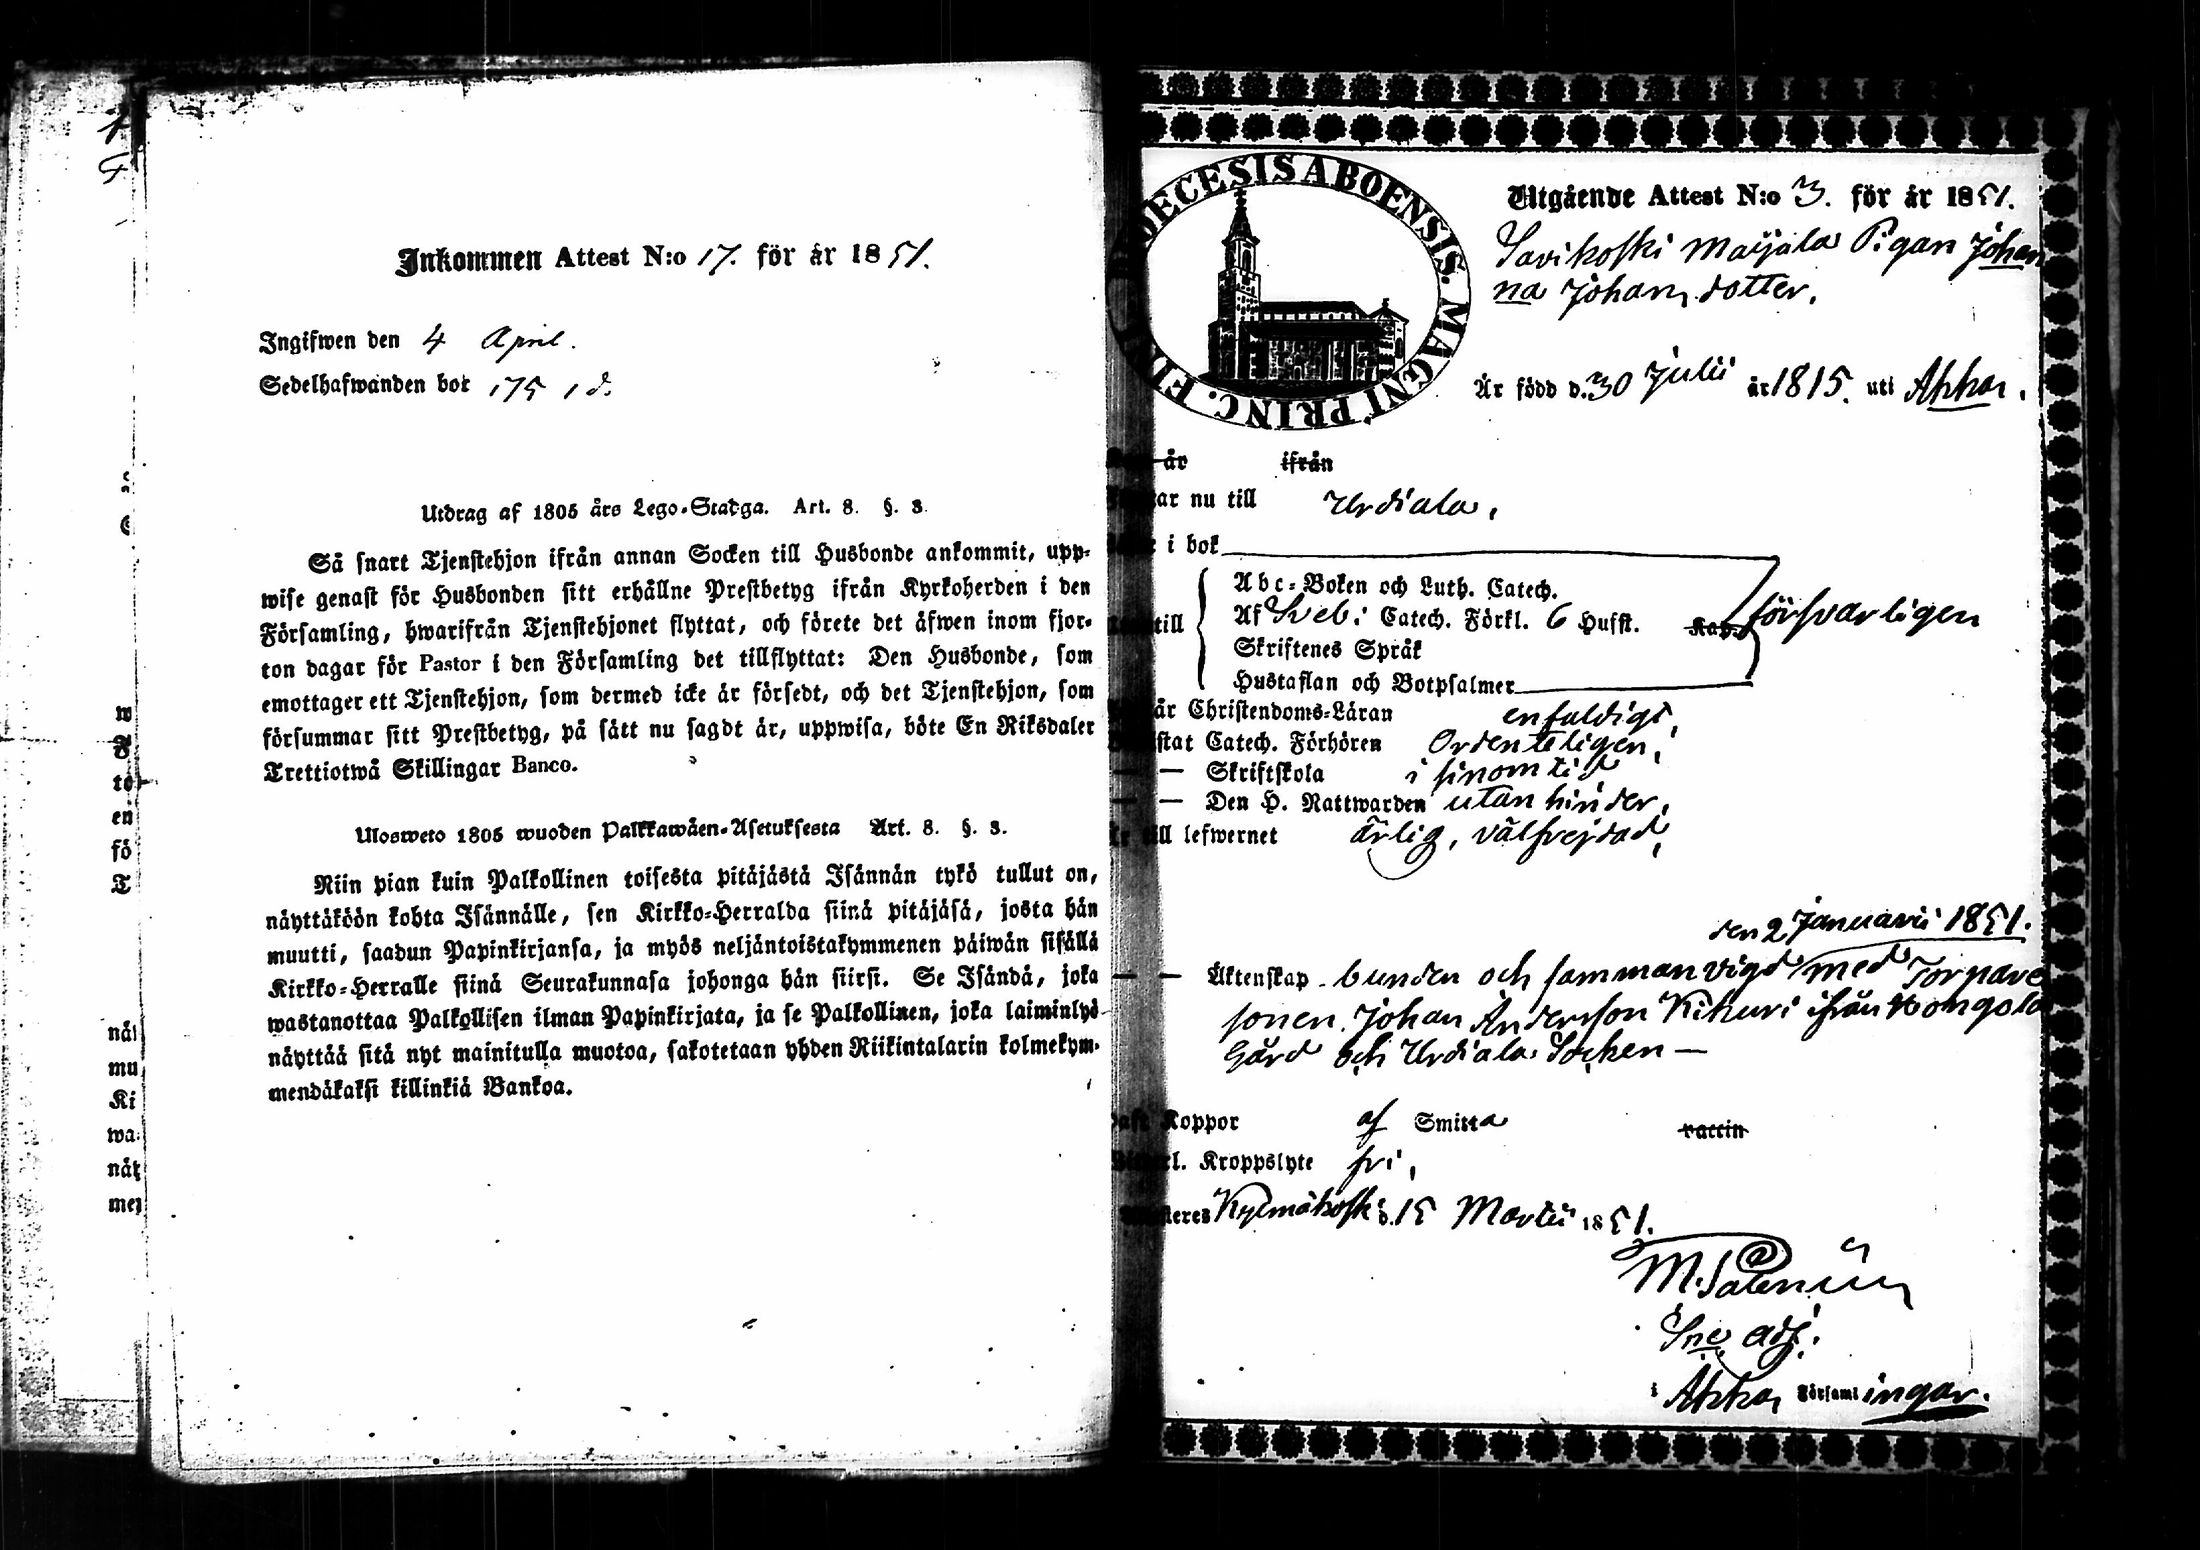 Inkommen Attest N:o 17. för år 1851.
Ingifwen den 4 April.
Sedelhafwanden bor 175 1 d.
Utdrag af 1805 års Lego-Stadga. Art. 8. §. 3.
Så snart Tjenstehjon ifrån annan Socken till Husbonde ankommit, upp-
wise genast för Husbonden sitt erhållne Prestbetyg ifrån Kyrkoherden i den
Församling, hwarifrån Tjenstehjonet flyttat, och förete det äfwen inom fjor-
ton dagar för Pastor i den Församling det tillflyttat: Den Husbonde, som
emottager ett Tjenstehjon, som dermed icke är försedt, och det Tjenstehjon, som
försummar sitt Prestbetyg, på sätt nu sagdt är, uppwisa, böte En Riksdaler
Trettiotwå Skillingar Banco.
Ulosweto 1805 wuoden Palkkawäen-Asetuksesta Art. 8. §. 3.
Niin pian kuin Palkollinen toisesta pitäjästä Isännän tykö tullut on,
näyttäköön kohta Isännälle, sen Kirkko-Herralda siinä pitäjäsä, josta hän
muutti, saadun Papinkirjansa, ja myös neljäntoistakymmenen päiwän sisällä
Kirkko-Herralle siinä Seurakunnasa johonga hän siirsi. Se Isändä, joka
wastanottaa Palkollisen ilman Papinkirjata, ja se Palkollinen, joka laiminlyö
näyttää sitä nyt mainitulla muotoa, sakotetaan yhden Riikintalarin kolmekym-
mendäkaksi killinkiä Bankoa.
DIOECESIS ABOENSIS. MAGNI PRINC. FI
Utgående Attest N:o 3. för år 1851.
Savikoski Maijala Pigan Johan
na Johansdotter.
Är född d. 30 Julii år 1815. uti Akkas.
år ifrån
nu till Urdiala,
i bok
Abc-Boken och Luth. Catech.
till Af Sveb: Catech. Förkl. 6 Husst. Kap. försvarligen
Skriftenes Språk
Hustaflan och Botpsalmer
Christendoms-Läran enfaldigt,
Catech. Förhören Ordenteligen,
— Skriftskola i sinom tid
— Den H. Nattwarden utan hinder,
till lefwernet ärlig, välfrejdad,
den 2 Januarii 1851.
— — Äktenskap bunden och sammanvigd med Torpare
sonen Johan Andersson Kikuri ifrån Hongola
Gård och Urdiala Socken —
Koppor af Smitta vaccin
Kroppslyte fri,
Kylmäkoski d. 15 Martii 1851.
M. Salenius
Sne adj.
i Akkas Församlingar.